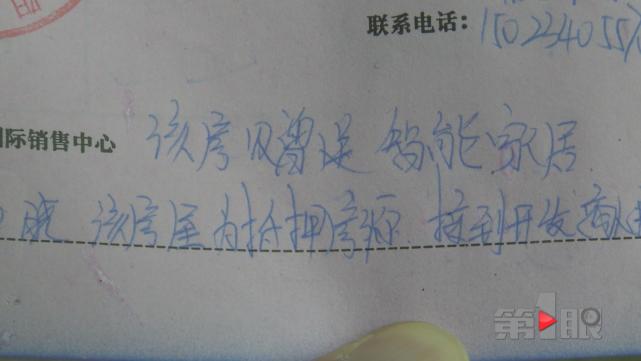 联系电话: 15023405
国际销售中心 该房只赠送 智能家居
晓 该房屋为抵押房源. 接到开发商
第1眼